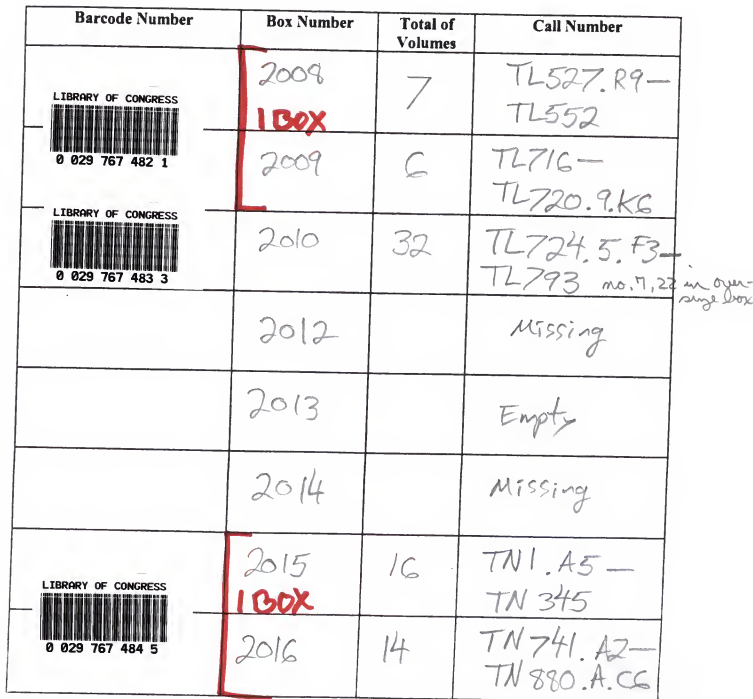 Barcode Number Box Number Total of Volumes Call Number
LIBRARY OF CONGRESS
0 029 767 482 1
2008 7 TL527.R9—
1 BOX TL552
2009 6 TL716—
TL720.9.K6
LIBRARY OF CONGRESS
0 029 767 483 3
2010 32 TL724.5.F3—
TL793 no. 7, 22 in over-
size box
2012 Missing
2013 Empty
2014 Missing
LIBRARY OF CONGRESS
0 029 767 484 5
2015 16 TN1.A5—
1 BOX TN 345
2016 14 TN741.A2—
TN880.A.C6